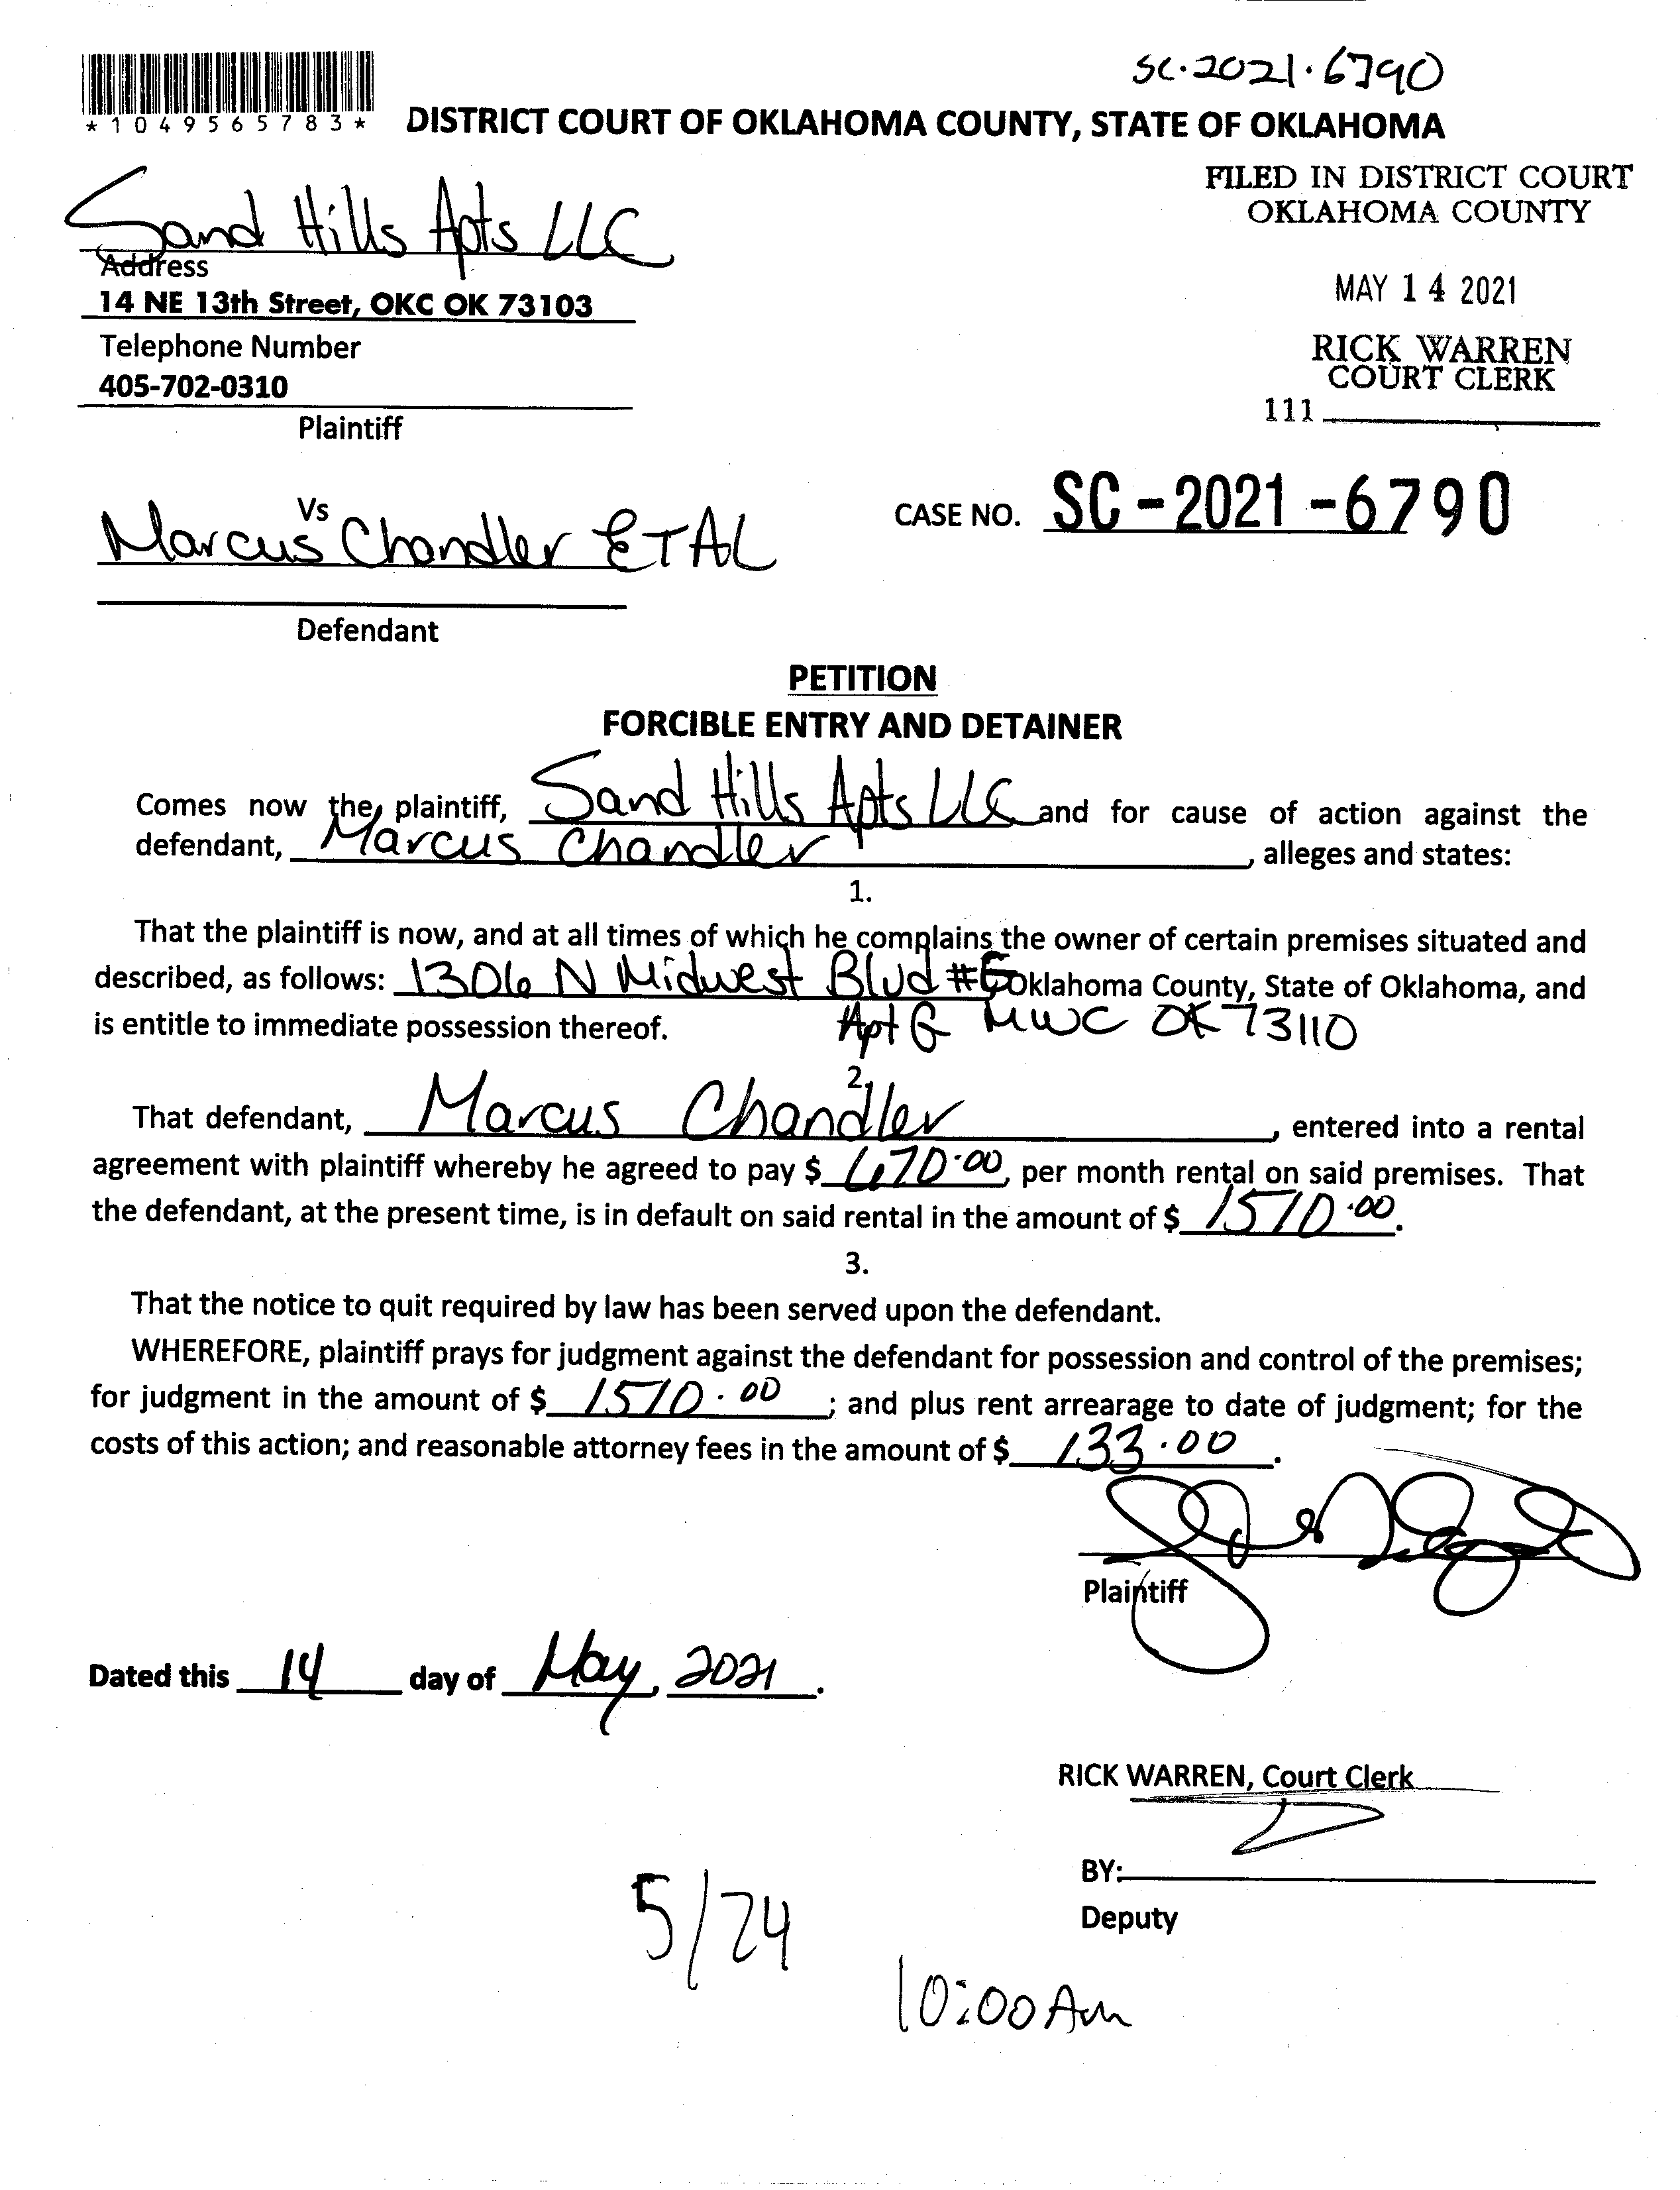 SC.2021.6790
*1049565783*
DISTRICT COURT OF OKLAHOMA COUNTY, STATE OF OKLAHOMA
FILED IN DISTRICT COURT
OKLAHOMA COUNTY
Sand Hills Apts LLC
Address
14 NE 13th Street, OKC OK 73103
MAY 14 2021
Telephone Number
405-702-0310
RICK WARREN
COURT CLERK
111
Plaintiff
Vs
Marcus Chandler ETAL
CASE NO. SC-2021-6790
Defendant
PETITION
FORCIBLE ENTRY AND DETAINER
Comes now the, plaintiff, Sand Hills Apts LLC and for cause of action against the
defendant, Marcus Chandler, alleges and states:
1.
That the plaintiff is now, and at all times of which he complains the owner of certain premises situated and
described, as follows: 1306 N Midwest Blvd #G Oklahoma County, State of Oklahoma, and
is entitle to immediate possession thereof. Apt G MWC OK 73110
2.
That defendant, Marcus Chandler, entered into a rental
agreement with plaintiff whereby he agreed to pay $ 670.00, per month rental on said premises. That
the defendant, at the present time, is in default on said rental in the amount of $ 1510.00.
3.
That the notice to quit required by law has been served upon the defendant.
WHEREFORE, plaintiff prays for judgment against the defendant for possession and control of the premises;
for judgment in the amount of $ 1510.00; and plus rent arrearage to date of judgment; for the
costs of this action; and reasonable attorney fees in the amount of $ 133.00.
Plaintiff
Dated this 14 day of May, 2021.
RICK WARREN, Court Clerk
BY:
Deputy
5/24
10:00 Am